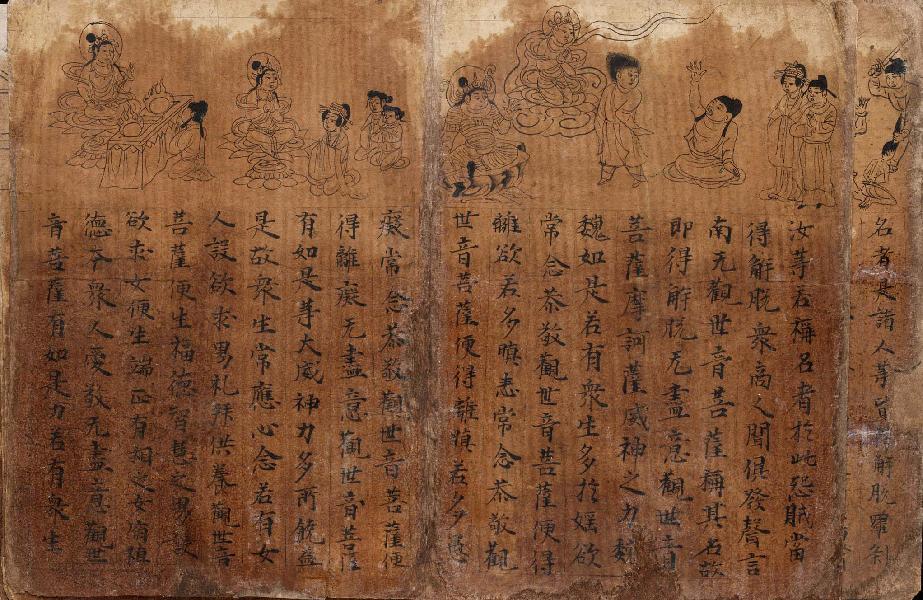 名者是諸人等皆得解脫羅刹
汝等若稱名者於此怨賊當
得解脫衆商人聞俱發聲言
南无觀世音菩薩稱其名故
即得解脫无盡意觀世音
菩薩摩訶薩威神之力巍
巍如是若有衆生多於婬欲
常念恭敬觀世音菩薩便得
離欲若多瞋恚常念恭敬觀
世音菩薩便得離瞋若多愚
癡常念恭敬觀世音菩薩便
得離癡无盡意觀世音菩薩
有如是等大威神力多所饒益
是故衆生常應心念若有女
人設欲求男礼拜供養觀世音
菩薩便生福德智慧之男設
欲求女便生端正有相之女宿殖
德本衆人愛敬无盡意觀世
音菩薩有如是力若有衆生